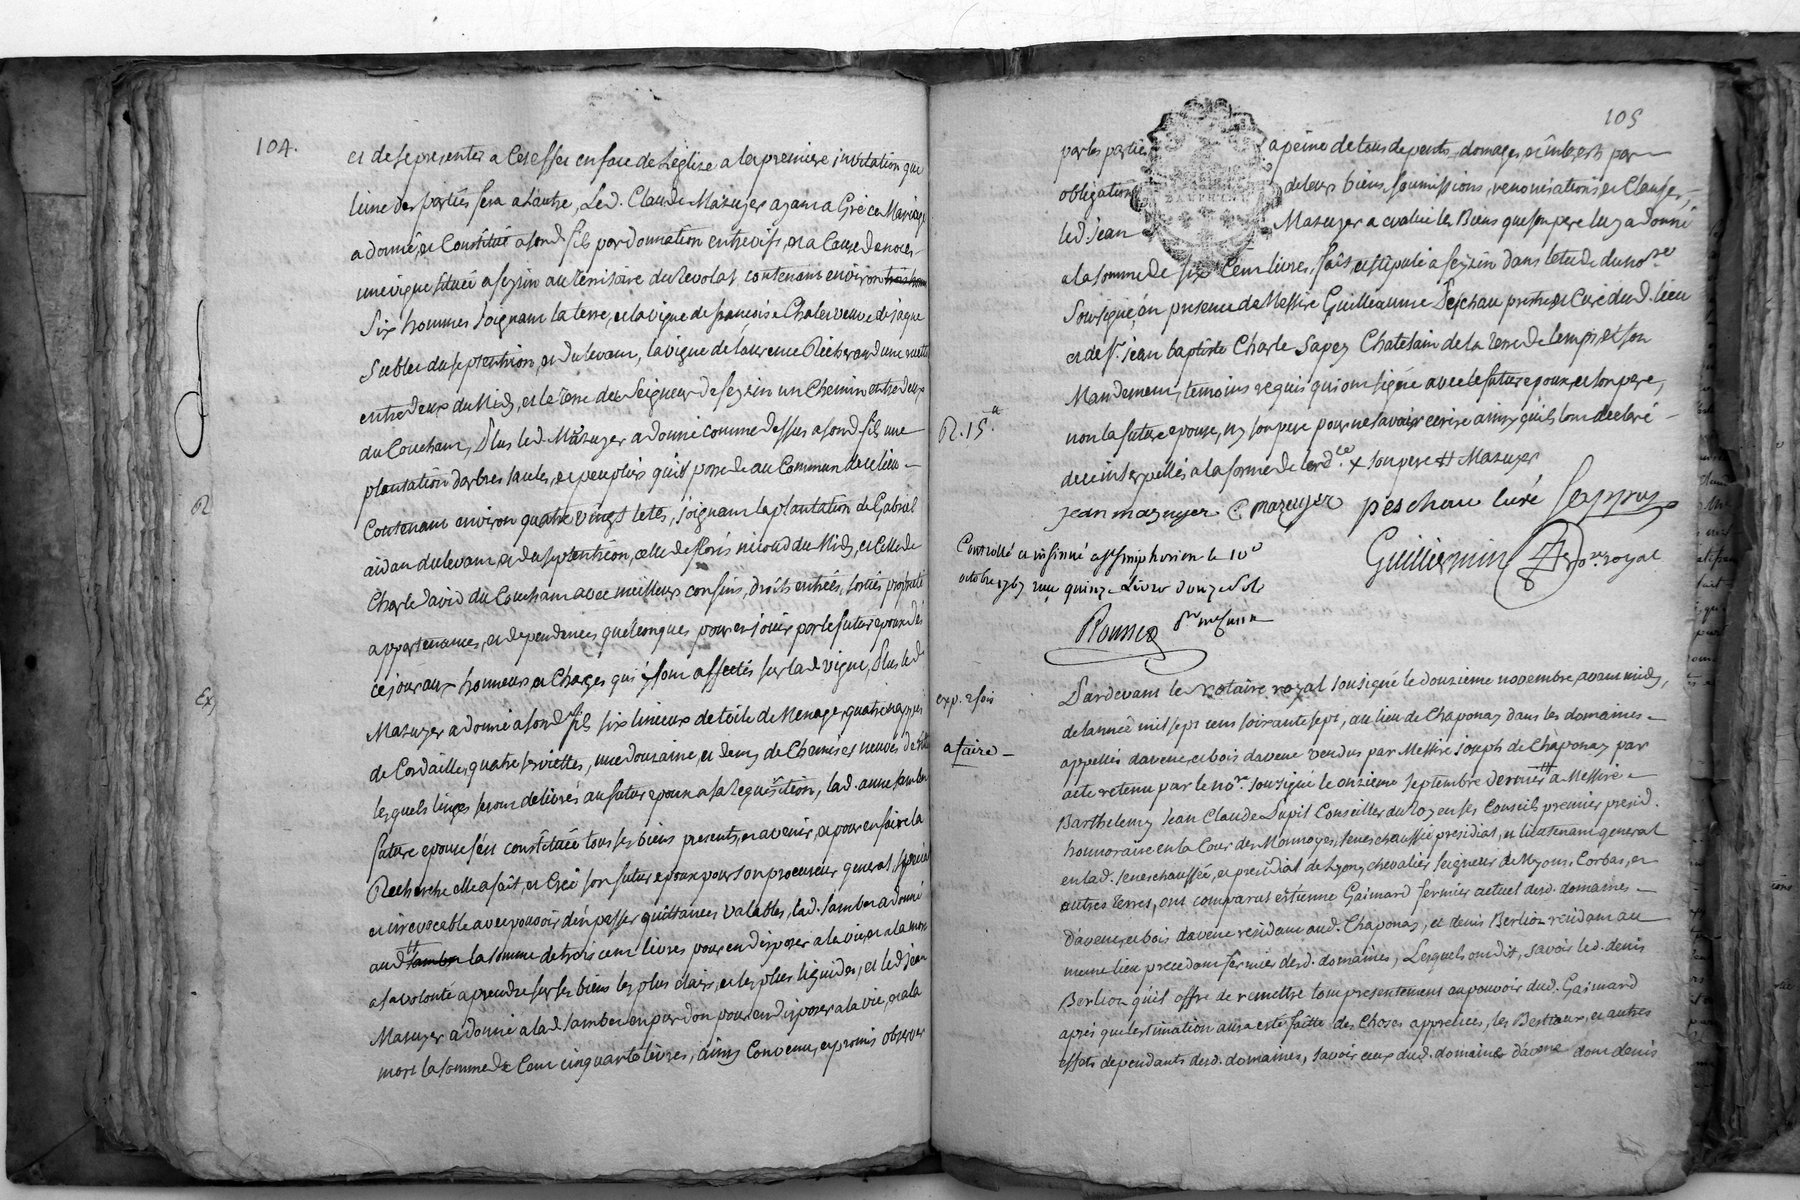 104.
et de se presenter a cet effet en face de Léglize a la premiere invitation que
lune des parties fera a Lautre, Led. Claude Mazuyer ayant a Gré ce Mariage
a donné, et Constitué a sond. fils par donnation entrevifs, et a Cause de noces
une vigne située a seyzin au territoire du revolat contenant environ
Six hommes joignant la terre, et la vigne de françoise Chaler veuve de jaque
Sublet du septentrion, et du levant, la vigne de laurence Recherand une
entredeux du Midy, et le terre du Seigneur de seyzin un Chemin entredeux
du Couchant, Plus led. Mazuyer a donné comme dessus a sond. fils une
plantation darbres saules, et peupliers quil possede au Commun de ce lieu
R
Contenant environ quatre vingt tetes, joignant la plantation de Gabriel
aidan du levant, et du septentrion, celle de floris nicoud du Midy, et celle de
Charle david du Couchant avec meilleurs confins, droits entrées, sorties proprieté
appartenances, et dependences quelconques pour en jouir par le futur epoux dés
ce jour aux honneurs et Charges qui sont affectés sur lad. vigne, Plus led.
Ex,
Mazuyer a donné a sond. fils six linceux de toile de Menage, quatre nappes
de Cordaille, quatre serviettes, une douzaine, et demy de Chemises neuves de
lesquels linges seront delivrés au futur epoux a sa requisition, lad. anne Jambon
future epouse sest constituée tous ses biens presents, et avenir, et pour en faire la
Recherche elle a fait, et Créé son futur epoux pour son procureur general, special
et irrevocable avec pouvoir den passer quittances valables, lad. Jambon a donné
aud. Jambon la somme de trois cent livres pour en disposer a la vie, et a la mort
a sa volonté a prendre sur ses biens les plus clairs, et les plus liquides, et led. jean
Mazuyer a donné a lad. Jambon en pur don pour en disposer a la vie, et a la
mort la somme de Cent cinquante livres, ainsy Convenu, et promis observer
105
par les parties a peine de tous depents, domages, et interets par
obligation de leurs biens, soumissions, renonciations, et Clauses,
DAUPHINE
led. jean Mazuyer a evalué les Biens que son pere luy a donné
a la somme de six Cent livres, fait et stipulé a seyzin dans letude du no.re
Soussigné, en presence de Messire Guilleaume Peschau pretre et Curé dud. lieu
et de Sr. jean baptiste Charle Sapey Chatelain de la terre de lemps, et son
Mandement, temoins requis qui ont signé avec le futur epoux, et son pere,
R. 15.
non la future epouse, ny son pere pour ne savoir ecrire ainsy quils lont declaré
de ce interpellés a la forme de lord.ce + son pere # Mazuyer
jean mazuyer C mazuyer peschau curé Sappey
Guilliermin no.re royal
Controllé et insinué a st simphorien le 10e
octobre 1767 reçu quinze Livres douze sols
exp. 2 fois
Pardevant le notaire royal soussigné le douzieme novembre avant midy,
de lannée mil sept cent soixante sept, au lieu de Chaponay dans les domaines
a faire
appellés davene, et bois davene vendus par Messire joseph de Chaponay par
acte retenu par le no.re soussigné le onzieme septembre dernier a Messire
Barthelemy jean Claude Dupil Conseiller du Roy en ses Conseils, premier presid.
honnoraire en la Cour des Monnoyes, seneschaussée presidial, et lieutenant general
en lad. seneschaussée, et presidial de Lyon, chevalier seigneur de Myons, Corbas, et
autres terres, ont comparut estienne Gaimard fermier actuel desd. domaines
davene, et bois davene residant aud. Chaponay, et denis Berlioz residant au
meme lieu precedant fermier desd. domaines, Lesquels ont dit, savoir led. denis
Berlioz quil offre de remettre tout presentement au pouvoir dud. Gaimard
après que lestimation aura eté faitte des choses appretiées, les Bestiaux, et autres
effets dependants desd. domaines, savoir ceux dud. domaine davene dont denis